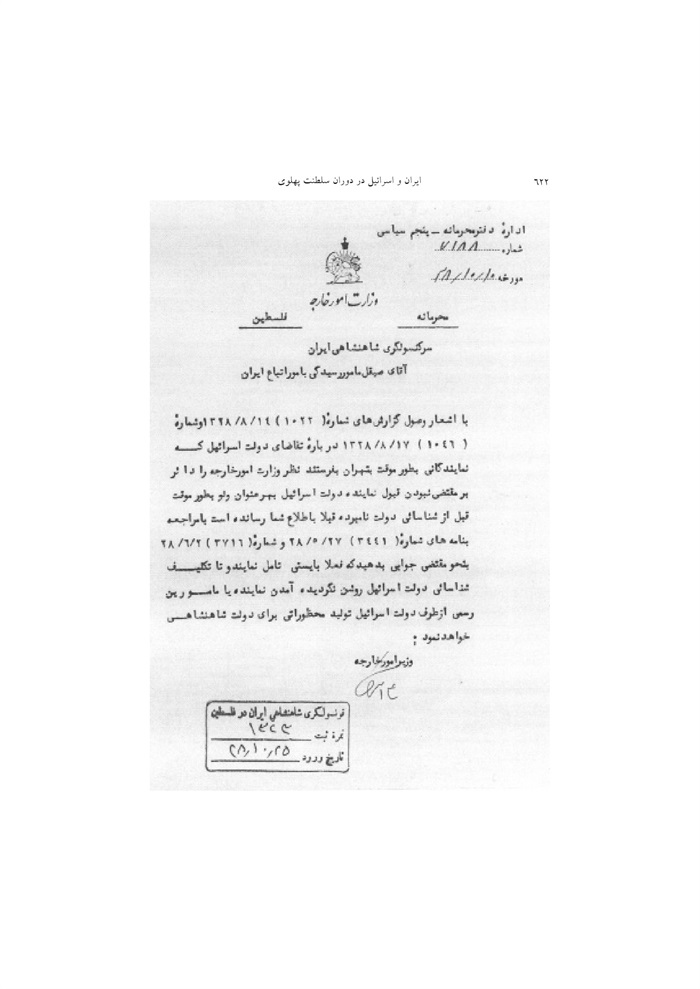 ایران و اسرائیل در دوران سلطنت پهلوی ٦٢٢
ادارهٔ دفتر محرمانه – پنجم سیاسی
شماره ۷۱۸۸
مورخه ۲۸/۱۰/۱۰
وزارت امور خارجه
محرمانه فلسطین
سرکنسولگری شاهنشاهی ایران
آقای صیقل مامور رسیدگی بامور اتباع ایران
با اشعار وصول گزارش‌های شمارهٔ (۱۰۲۲) ۱۳۲۸/۸/۱۴ وشمارهٔ
(۱۰۴۶) ۱۳۲۸/۸/۱۷ در بارهٔ تقاضای دولت اسرائیل کـــه
نمایندگانی بطور موقت بتهران بفرستند نظر وزارت امور خارجه را دائر
بر مقتضی نبودن قبول نماینده دولت اسرائیل بهر عنوان ولو بطور موقت
قبل از شناسائی دولت نامبرده قبلا باطلاع شما رسانده است بامراجعه
بنامه های شمارهٔ (۳۴۴۱) ۲۸/۵/۲۷ و شمارهٔ (۳۷۱۶) ۲۸/۶/۲
بنحو مقتضی جوابی بدهید که فعلا بایستی تامل نمایند و تا تکلیــف
شناسائی دولت اسرائیل روشن نگردیده آمدن نماینده یا مامــورین
رسمی از طرف دولت اسرائیل تولید محظوراتی برای دولت شاهنشاهــی
خواهد نمود ؛
وزیر امور خارجه
قونسولگری شاهنشاهی ایران در فلسطین
نمرهٔ ثبت ۱۳۲۳
تاریخ ورود ۲۸/۱۰/۲۵